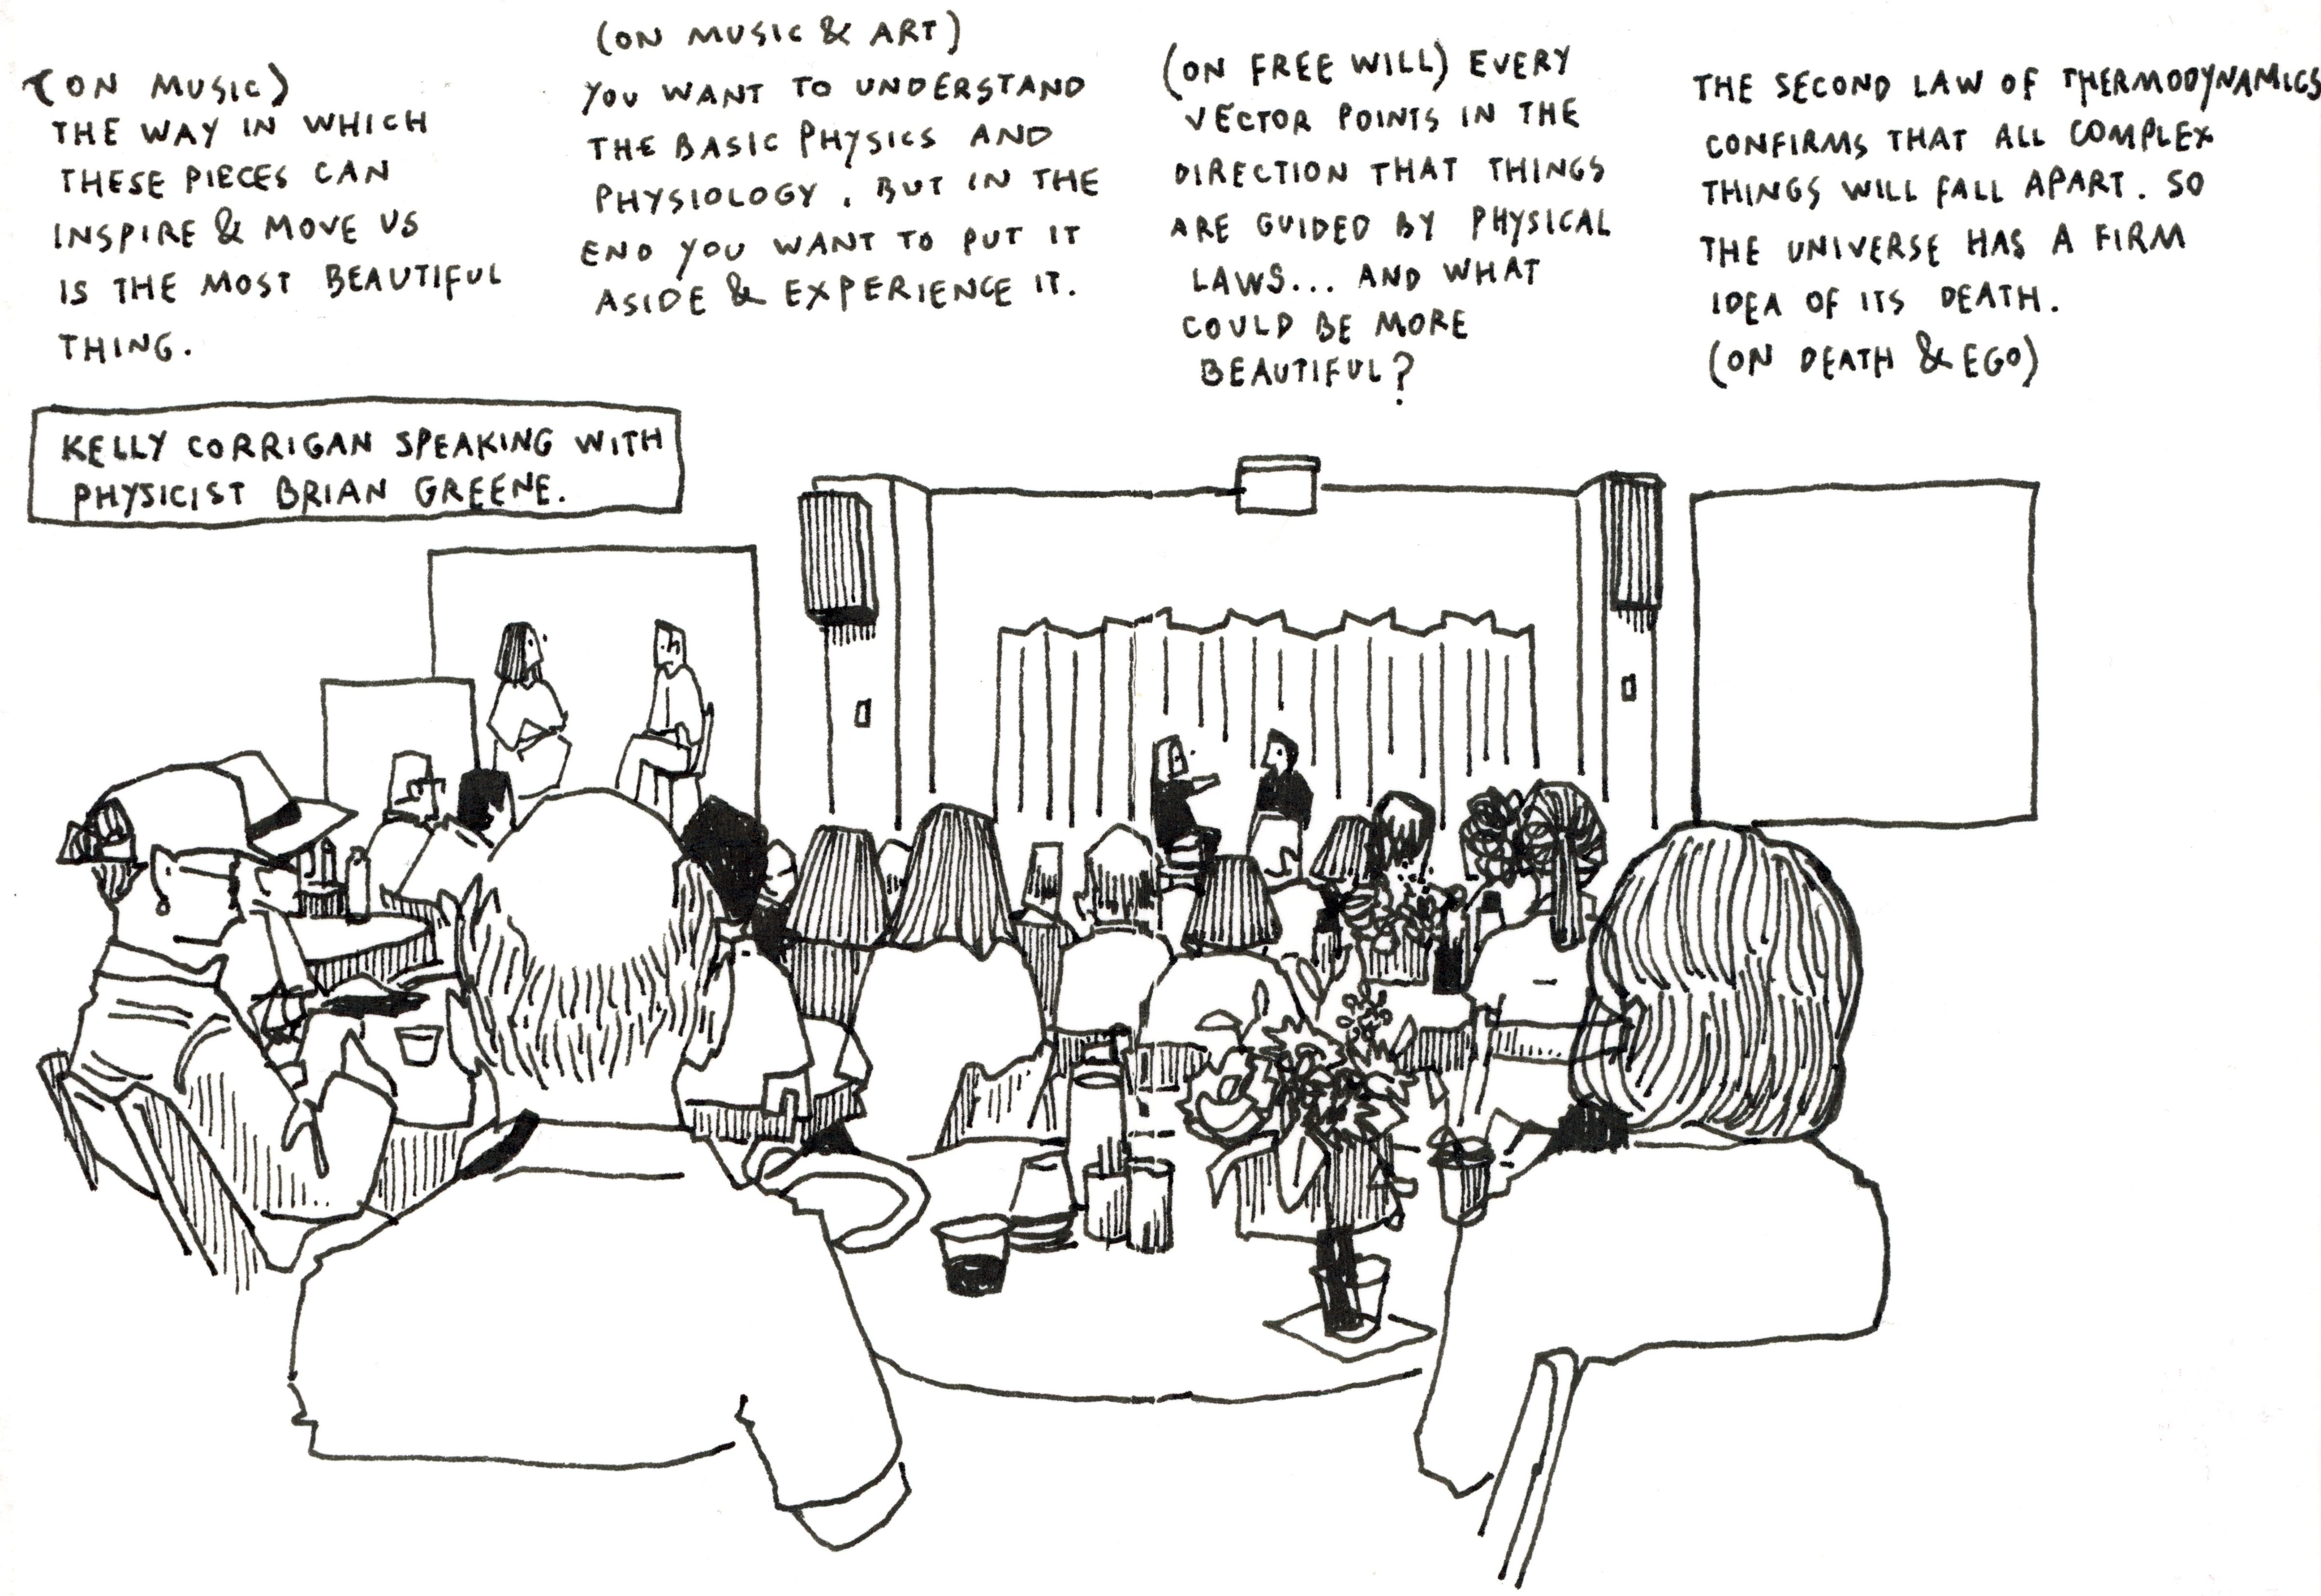 (ON MUSIC)
THE WAY IN WHICH
THESE PIECES CAN
INSPIRE & MOVE US
IS THE MOST BEAUTIFUL
THING.
(ON MUSIC & ART)
YOU WANT TO UNDERSTAND
THE BASIC PHYSICS AND
PHYSIOLOGY. BUT IN THE
END YOU WANT TO PUT IT
ASIDE & EXPERIENCE IT.
(ON FREE WILL) EVERY
VECTOR POINTS IN THE
DIRECTION THAT THINGS
ARE GUIDED BY PHYSICAL
LAWS... AND WHAT
COULD BE MORE
BEAUTIFUL?
THE SECOND LAW OF THERMODYNAMICS
CONFIRMS THAT ALL COMPLEX
THINGS WILL FALL APART. SO
THE UNIVERSE HAS A FIRM
IDEA OF ITS DEATH.
(ON DEATH & EGO)
KELLY CORRIGAN SPEAKING WITH
PHYSICIST BRIAN GREENE.